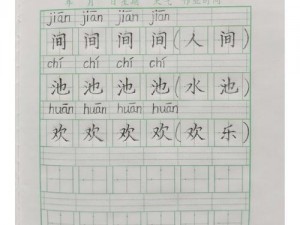 年 月 日 星期 天气
jiān jiān jiān jiān
间 间 间 间 (人 间)
chí chí chí chí
池 池 池 池 (水 池)
huān huān huān huān
欢 欢 欢 欢 (欢 乐)